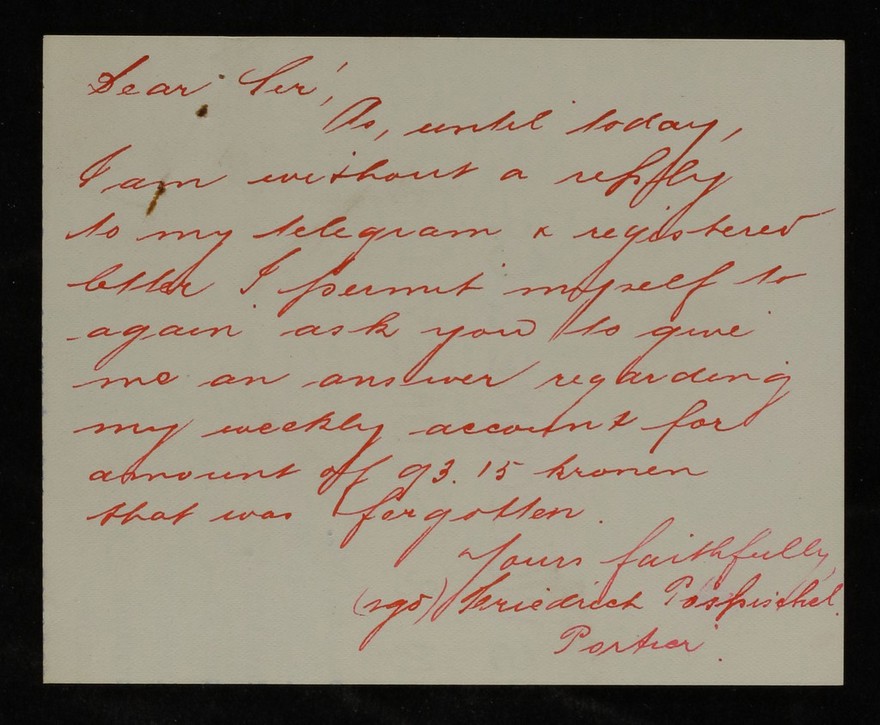 Dear Sir,
As, until today,
I am without a reply
to my telegram & registered
letter I permit myself to
again ask you to give
me an answer regarding
my weekly account for
amount of 93.15 kronen
that was forgotten.
Yours faithfully
(sgd) Friedrich Pospischel.
Portier.